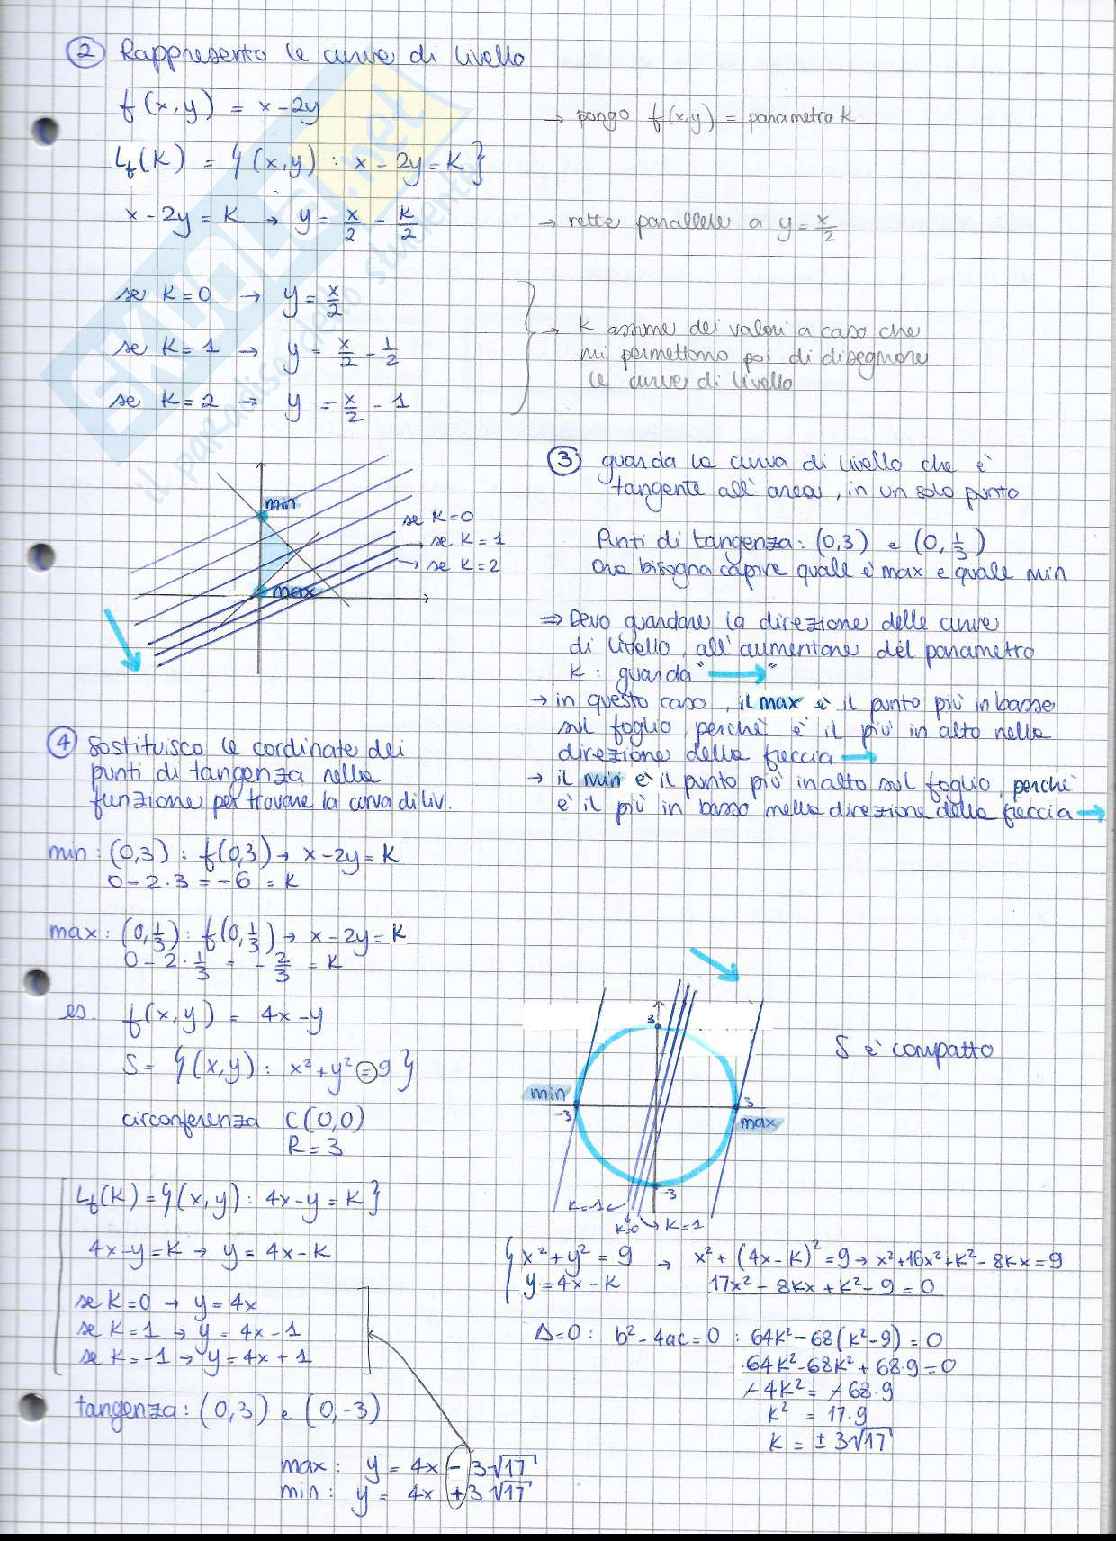 ② Rappresento le curve di livello
f(x,y) = x-2y → pongo f(x,y) = parametro k
Lf(K) = {(x,y) : x-2y=K}
x-2y = K → y = x/2 - K/2 → rette parallele a y = x/2
se K=0 → y = x/2
se K=1 → y = x/2 - 1/2
se K=2 → y = x/2 - 1
→ K assume dei valori a caso che
mi permettono poi di disegnare
le curve di livello
min
max
se K=0
→ se K=1
→ se K=2
③ guarda la curva di livello che è
tangente all'area, in un solo punto
Punti di tangenza: (0,3) e (0,1/3)
Ora bisogna capire quale è max e quale min
⇒ Devo guardare la direzione delle curve
di livello, all'aumentare del parametro
K: guarda "→"
→ in questo caso, il max è il punto più in basso
sul foglio, perché è il più in alto nella
direzione della freccia →
→ il min è il punto più in alto sul foglio, perché
è il più in basso nella direzione della freccia →
④ Sostituisco le cordinate dei
punti di tangenza nella
funzione per trovare la curva di liv.
min: (0,3) : f(0,3) → x-2y=K
0-2·3 = -6 = K
max: (0,1/3) : f(0,1/3) → x-2y=K
0-2·1/3 = -2/3 = K
es. f(x,y) = 4x-y
S = {(x,y) : x²+y²=9}
circonferenza C(0,0)
R=3
S è compatto
3
min
-3
3
max
-3
K=-1
K=0
→ K=1
Lf(K) = {(x,y) : 4x-y = K}
4x-y=K → y = 4x-K
se K=0 → y = 4x
se K=1 → y = 4x-1
se K=-1 → y = 4x+1
tangenza: (0,3) e (0,-3)
max: y = 4x - 3√17
min: y = 4x + 3√17
{x²+y²=9 → x²+(4x-K)²=9 → x²+16x²+K²-8Kx=9
y=4x-K 17x²-8Kx+K²-9=0
Δ=0: b²-4ac=0 : 64K²-68(K²-9)=0
64K²-68K²+68·9=0
-4K² = -68·9
K² = 17·9
K = ±3√17
SKUOLA.net
il paradiso dello studente